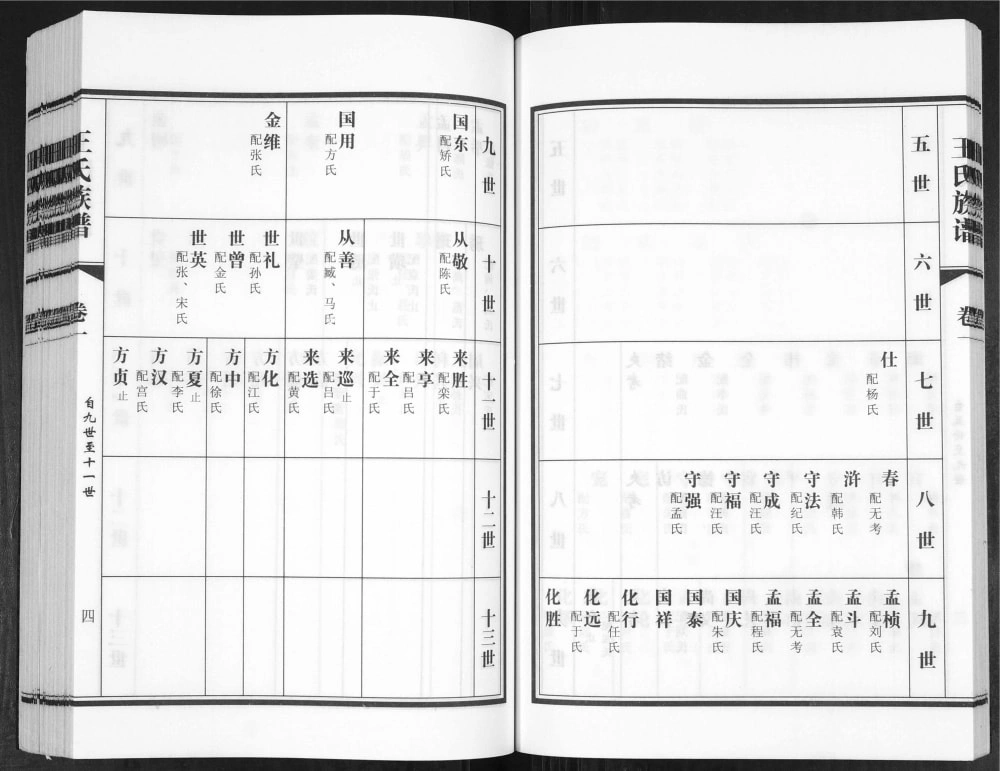 王氏族谱
卷一
五世
六世
七世
仕
配杨氏
八世
春
配无考
浒
配韩氏
守法
配纪氏
守成
配汪氏
守福
配汪氏
守强
配孟氏
九世
孟桢
配刘氏
孟斗
配袁氏
孟全
配无考
孟福
配程氏
国庆
配朱氏
国泰
国祥
化行
配任氏
化远
配于氏
化胜
九世
国东
配矫氏
国用
配方氏
金维
配张氏
十世
从敬
配陈氏
从善
配臧、马氏
世礼
配孙氏
世曾
配金氏
世英
配张、宋氏
十一世
来胜
配栾氏
来享
配吕氏
来全
配于氏
来巡止
配吕氏
来选
配黄氏
方化
配江氏
方中
配徐氏
方夏止
配李氏
方汉
配宫氏
方贞止
十二世
十三世
王氏族谱
卷一
自九世至十一世
四